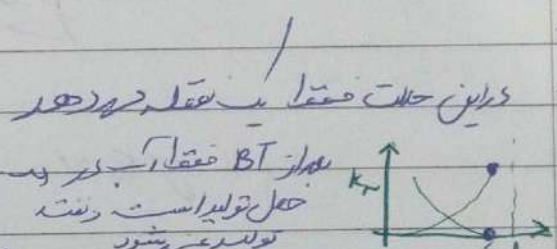 در این حالت فقط یک نقطه می‌دهد
بعد از BT فقط آب در
حال تولید است و نفت
تولید نمی‌شود
kr